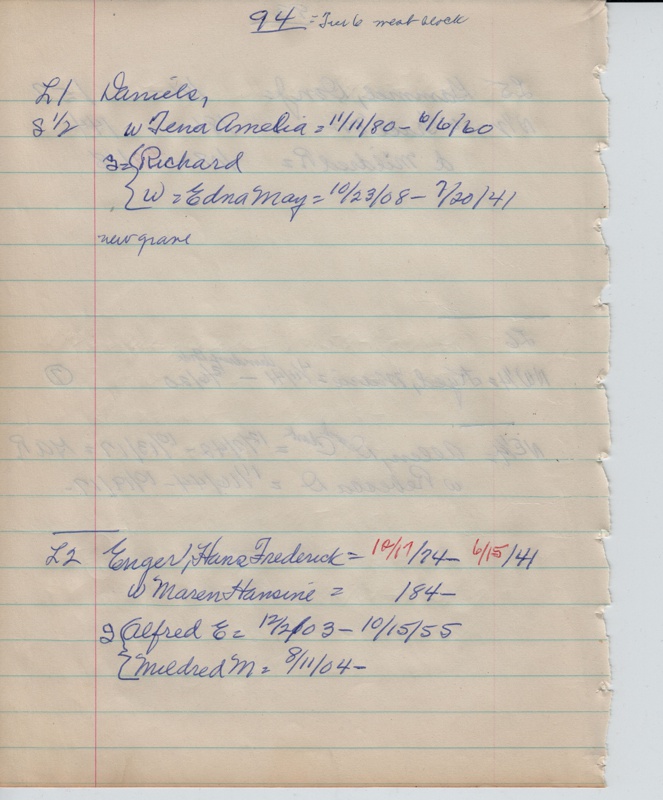 94 = Tier 6 west block
L1 Daniels,
S 1/2 w Tena Amelia = 11/11/80 - 6/6/60
Richard
W = Edna May = 10/23/08 - 7/20/41
new grave
L2 Enger, Hans Frederick = 10/17/74 - 6/15/41
w Maren Hansine = 184-
Alfred E = 12/2/03 - 10/15/55
Mildred M = 8/11/04-